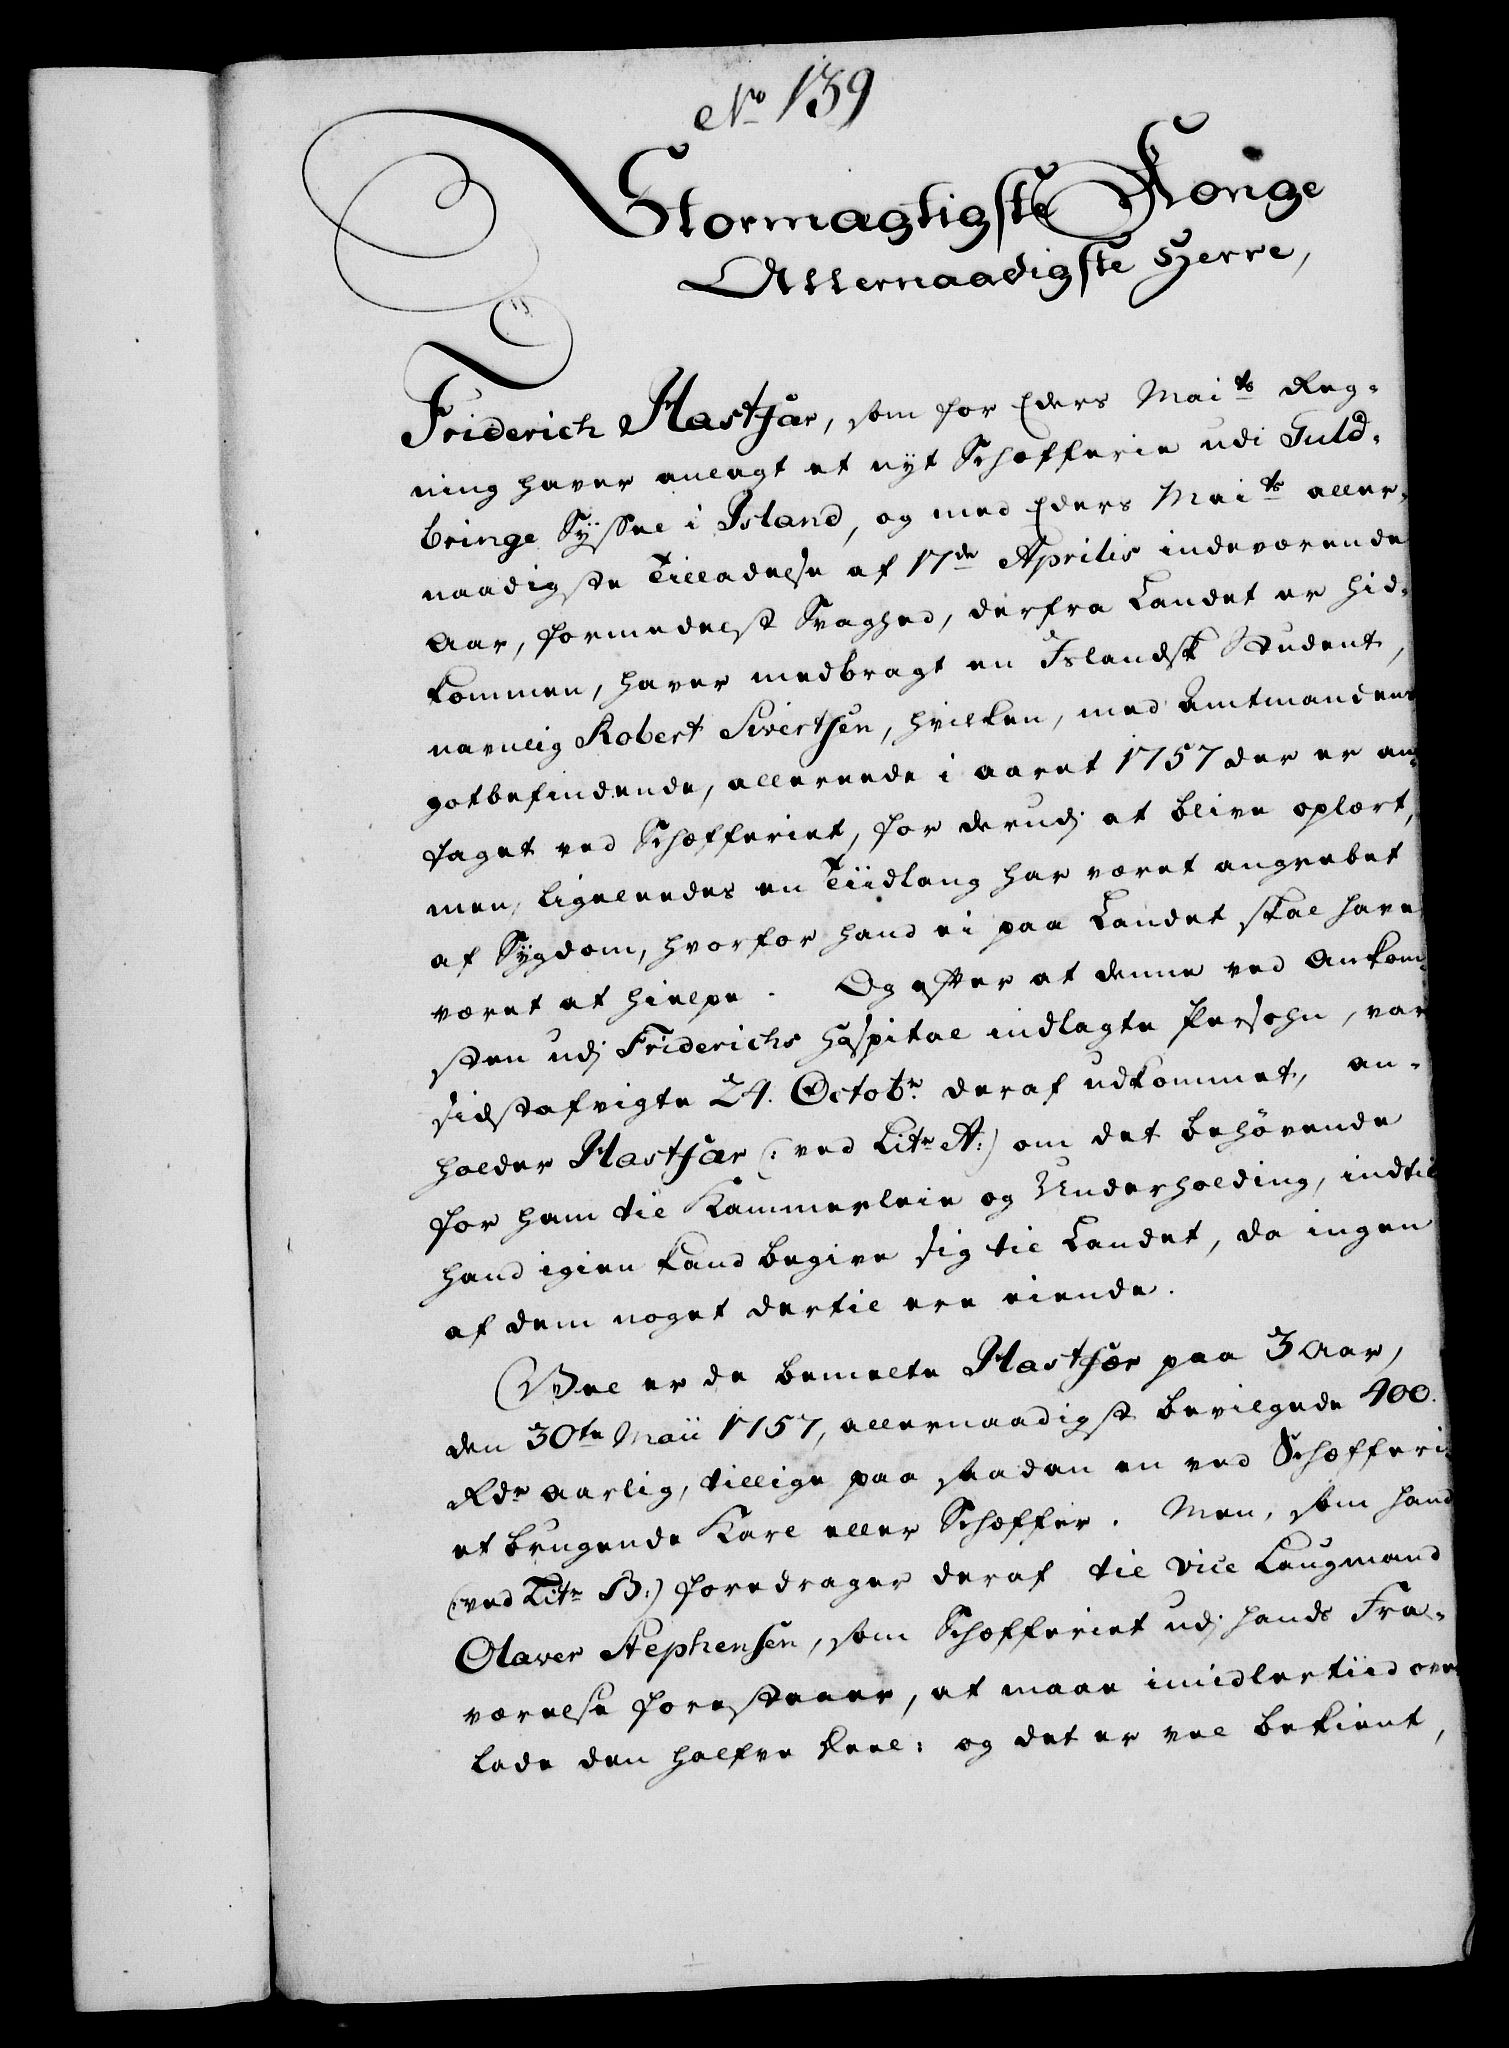 No 139
Stormægtigste Konge
Allernaadigste Herre,
Friderich Hastfær, som for Eders Maits Reg-
ning haver anlagt et nÿt Schefferie udi Guld-
bringe Sÿssel i Island, og med Eders Maits aller-
naadigste Tilladelse af 17de Aprilis indeværende
Aar, formedelst Svaghed, derfra Landet er hid-
kommen, haver medbragt en Islandsk Student,
navnlig Robert Sivertsen, hvilken, med Amtmandens
gotbefindende, allereede i aaret 1757 der er an-
taget ved Schefferiet, for derudj at blive oplært,
men, ligeleedes en Tiidlang har været angrebet
af Sÿgdom, hvorfor hand ei paa Landet skal have
været at hielpe. Og efter at denne ved Ankom-
sten udj Friderichs Hospital indlagte Persohn, var
sidstafvigte 24. Octobr. deraf udkommet, an-
holder Hastfær (: ved Litr A:) om det behøvende
for ham til Kammerleie og Underholding, indtil
hand igien kand begive sig til Landet, da ingen
af dem noget dertil ere eiende.
Vel er de bemelte Hastfær paa 3 Aar,
den 30te Maii 1757, allernaadigst bevilgede 400.
Rdr aarlig, tillige paa saadan en ved Schefferi-
et brugende Karl eller Scheffer. Men, som hand
(:ved Litr B:) foredrager deraf til Vice Laugmand
Olaver Stephensen, som Schefferiet udj hands Fra-
værelse forestaaer, at maae imidlertiid over
lade den halfve Deel: og det er vel bekient,